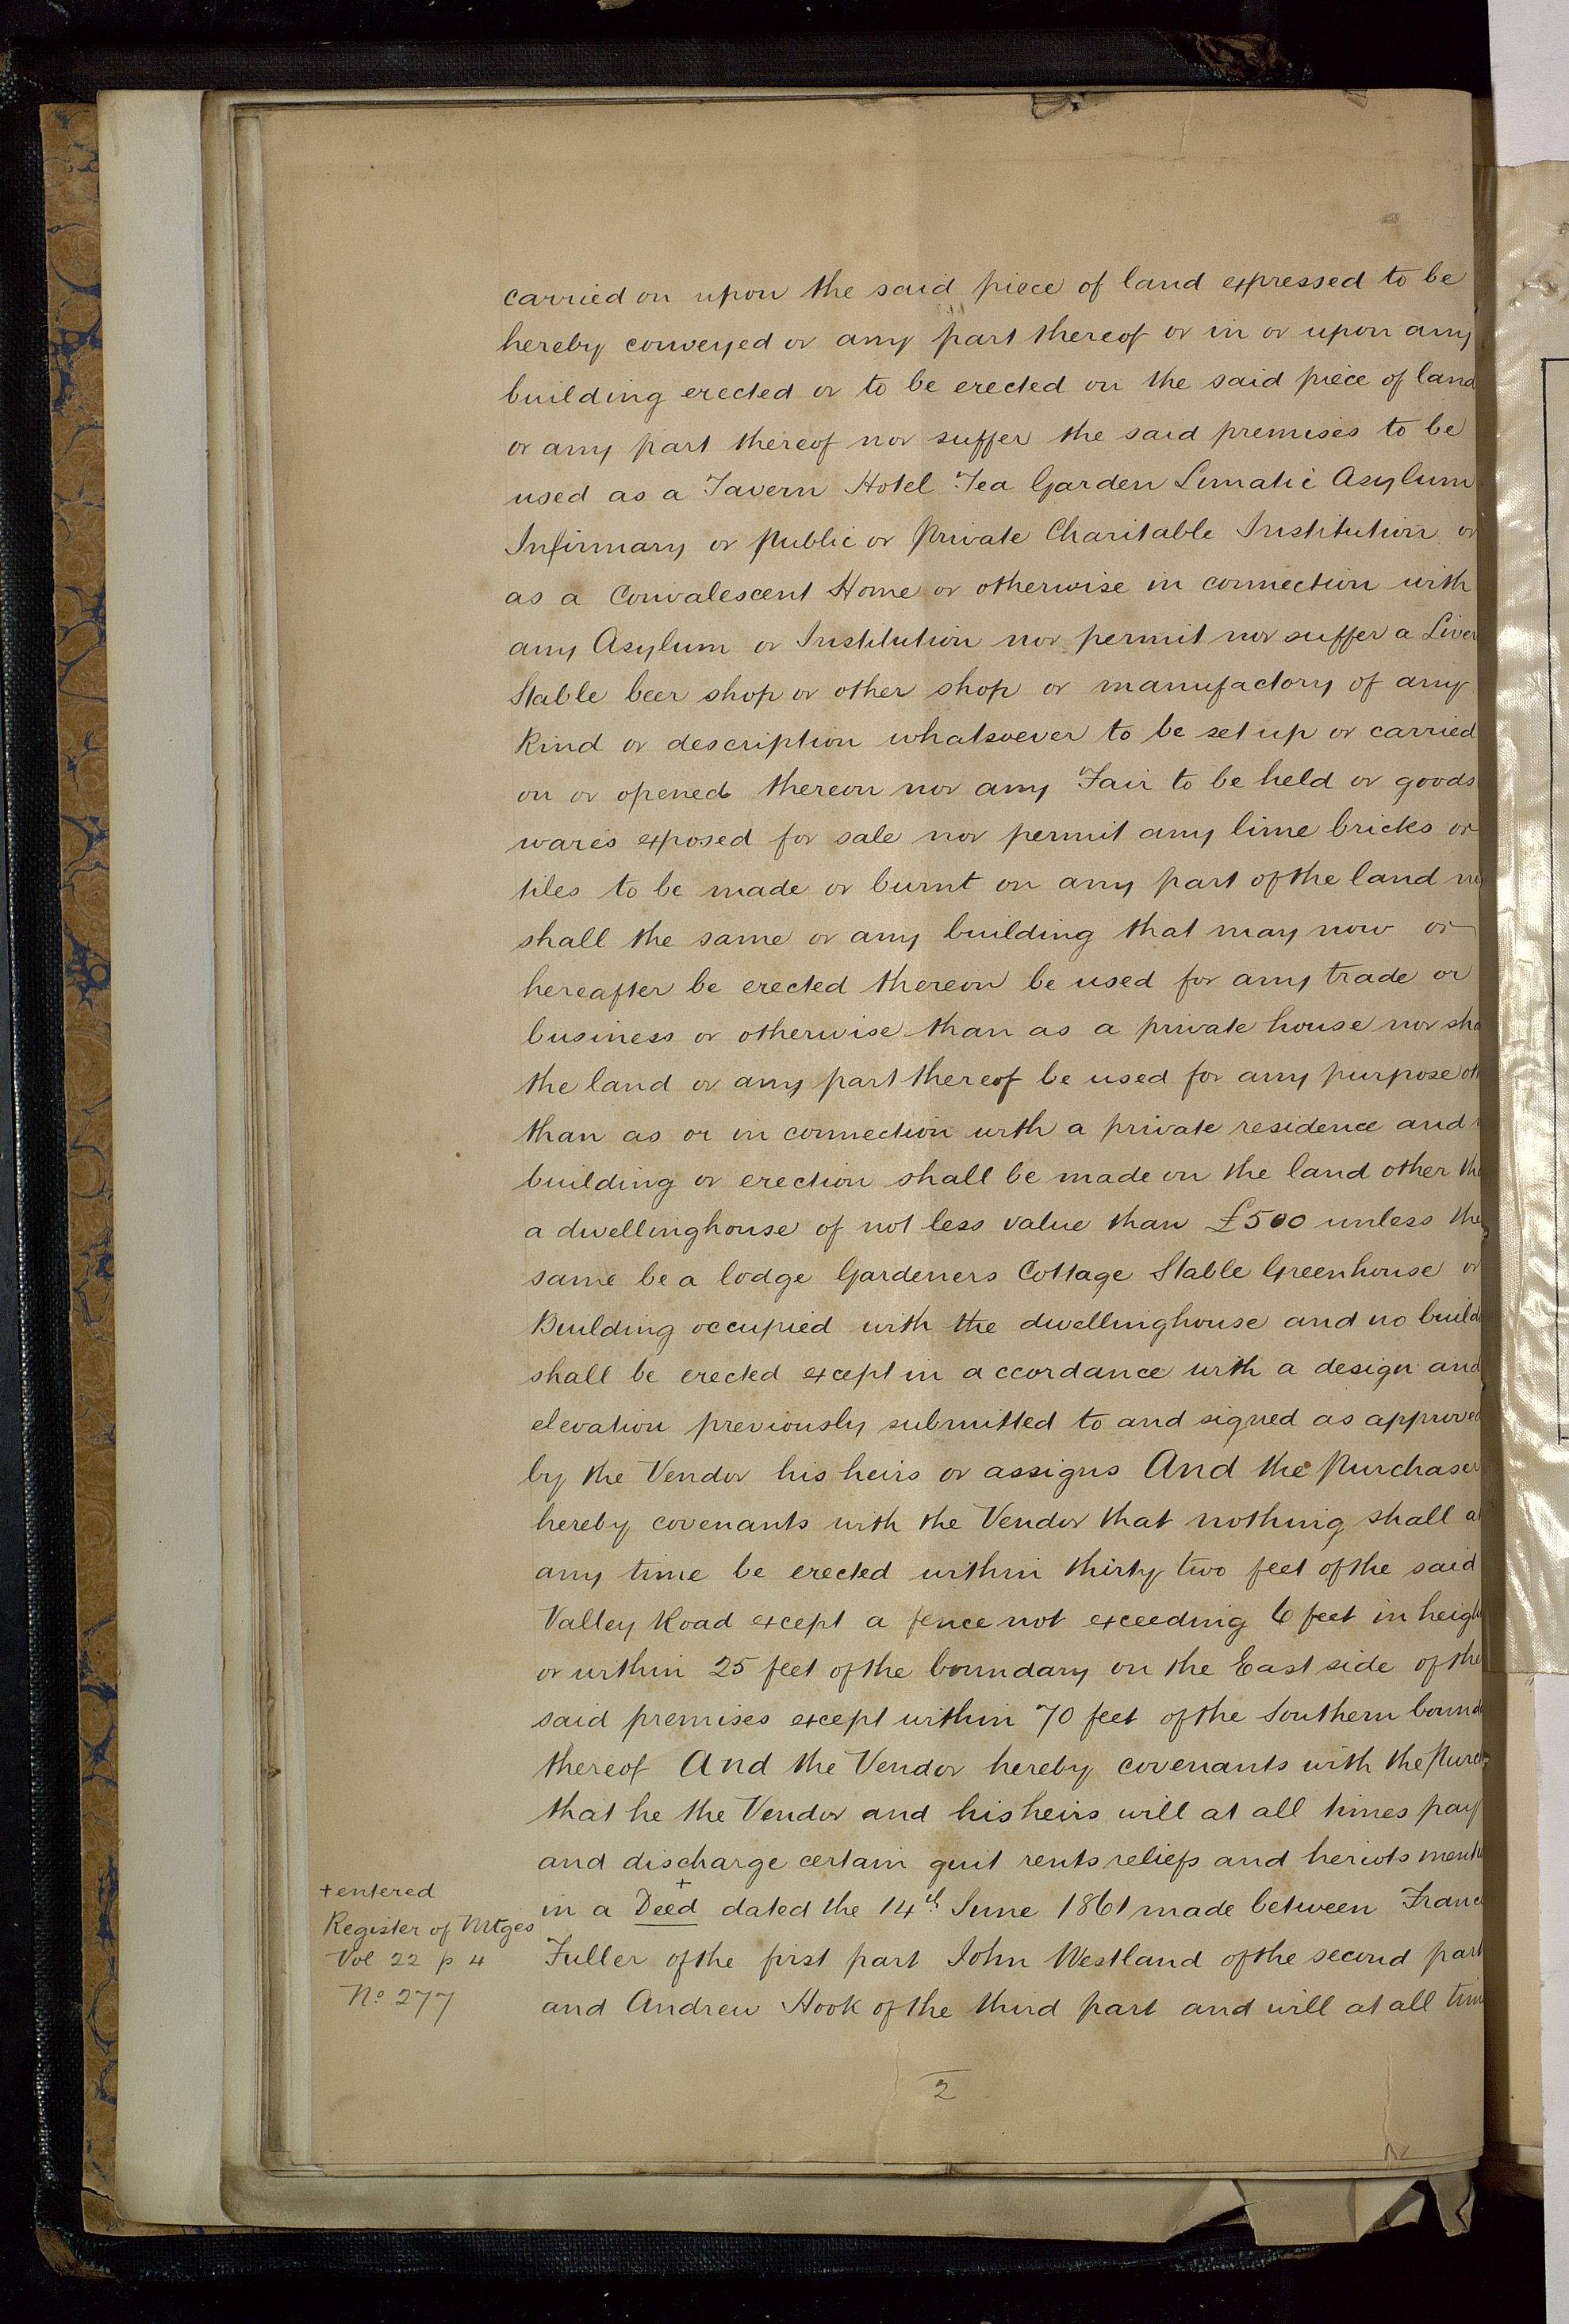 carried on upon the said piece of land expressed to be
hereby conveyed or any part thereof or in or upon any
building erected or to be erected on the said piece of land
or any part thereof nor suffer the said premises to be
used as a Tavern Hotel Tea Garden Lunatic Asylum
Infirmary or Public or Private Charitable Institution or
as a Convalescent Home or otherwise in connection with
any Asylum or Institution nor permit nor suffer a Liver
Stable beer shop or other shop or manufactory of any
kind or description whatsoever to be set up or carried
on or opened thereon nor any Fair to be held or goods
wares exposed for sale nor permit any lime bricks or
tiles to be made or burnt on any part of the land
shall the same or any building that may now or
hereafter be erected thereon be used for any trade or
business or otherwise than as a private house nor sha
the land or any part thereof be used for any purpose ot
than as or in connection with a private residence and
building or erection shall be made on the land other tha
a dwellinghouse of not less value than £500 unless the
same be a lodge Gardeners Cottage Stable Greenhouse or
Building occupied with the dwellinghouse and no build
shall be erected except in accordance with a design and
elevation previously submitted to and signed as approved
by the Vendor his heirs or assigns And the Purchaser
hereby covenants with the Vendor that nothing shall at
any time be erected within thirty two feet of the said
Valley Road except a fence not exceeding 6 feet in heigh
or within 25 feet of the boundary on the East side of the
said premises except within 70 feet of the Southern bound
thereof And the Vendor hereby covenants with the Purch
that he the Vendor and his heirs will at all times pay
and discharge certain quit rents reliefs and heriots menti
+entered
Register of Mtges
Vol 22 p 4
No 277
in a Deed+ dated the 14th June 1861 made between Franc
Fuller of the first part John Westland of the second part
and Andrew Hook of the third part and will at all tim
2